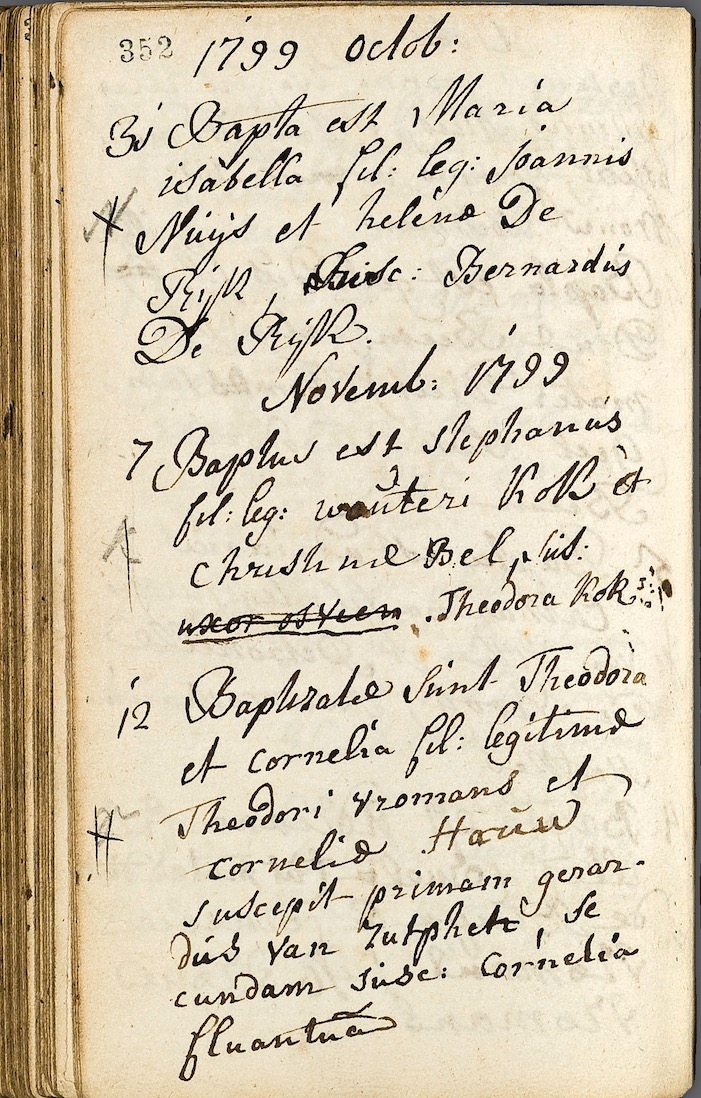 352 1799 Octob:
31 Bapta est Maria
isabella fil: leg: Joannis
Nuijs et helenæ De
Rijk, Susc: Bernardus
De Rijk.
Novemb: 1799
7 Baptus est stephanus
fil: leg: wouteri Kok et
Christinæ Bel, sus:
uxor osveen . Theodora Kok
12 Baptizatæ sunt Theodora
et cornelia fil: legitimæ
Theodori vromans et
corneliæ
suscepit primam gerar-
dus van Zutphen, se
cundam susc: Cornelia